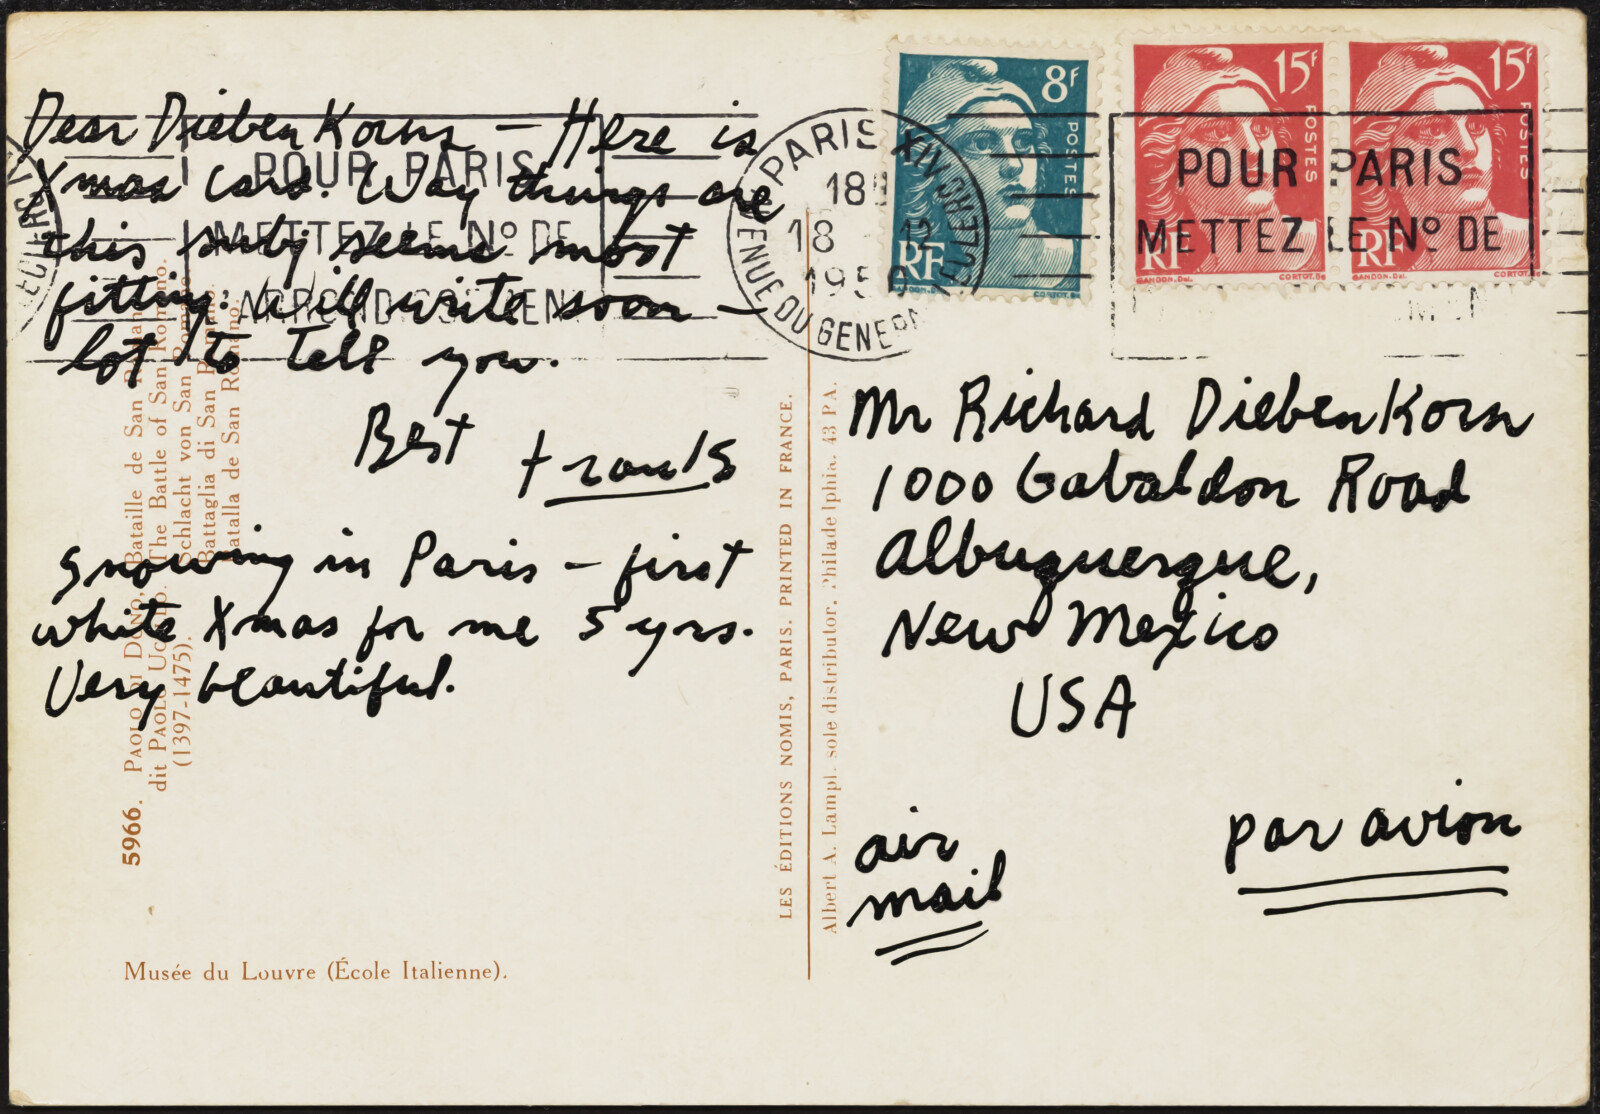 Dear Dieben Korns – Here is
Xmas card. Way things are
this subj seems most
fitting. Will write soon –
lot to tell you.
Best
Frank S
Snowing in Paris – first
white Xmas for me 5 yrs.
Very beautiful.
Mr Richard DiebenKorn
1000 Gabaldon Road
Albuquerque,
New Mexico
USA
air
mail
par avion
8F
POSTES
RF
GANDON.Del.
CORTOT.Sc
15F
POSTES
RF
GANDON.Del.
CORTOT.Sc
15F
POSTES
RF
GANDON.Del.
CORTOT.Sc
PARIS XIV
18H
18 12
1950
AVENUE DU GENERAL LECLERC
POUR PARIS
METTEZ LE No DE
POUR PARIS
METTEZ LE No DE
5966. PAOLO DI DONO,
dit PAOLO UCCELLO.
(1397-1475).
Bataille de San Romano.
The Battle of San Romano.
Schlacht von San Romano.
Battaglia di San Romano.
Batalla de San Romano.
Musée du Louvre (École Italienne).
LES ÉDITIONS NOMIS, PARIS. PRINTED IN FRANCE.
Albert A. Lampl. sole distributor. Philadelphia. 43 PA.